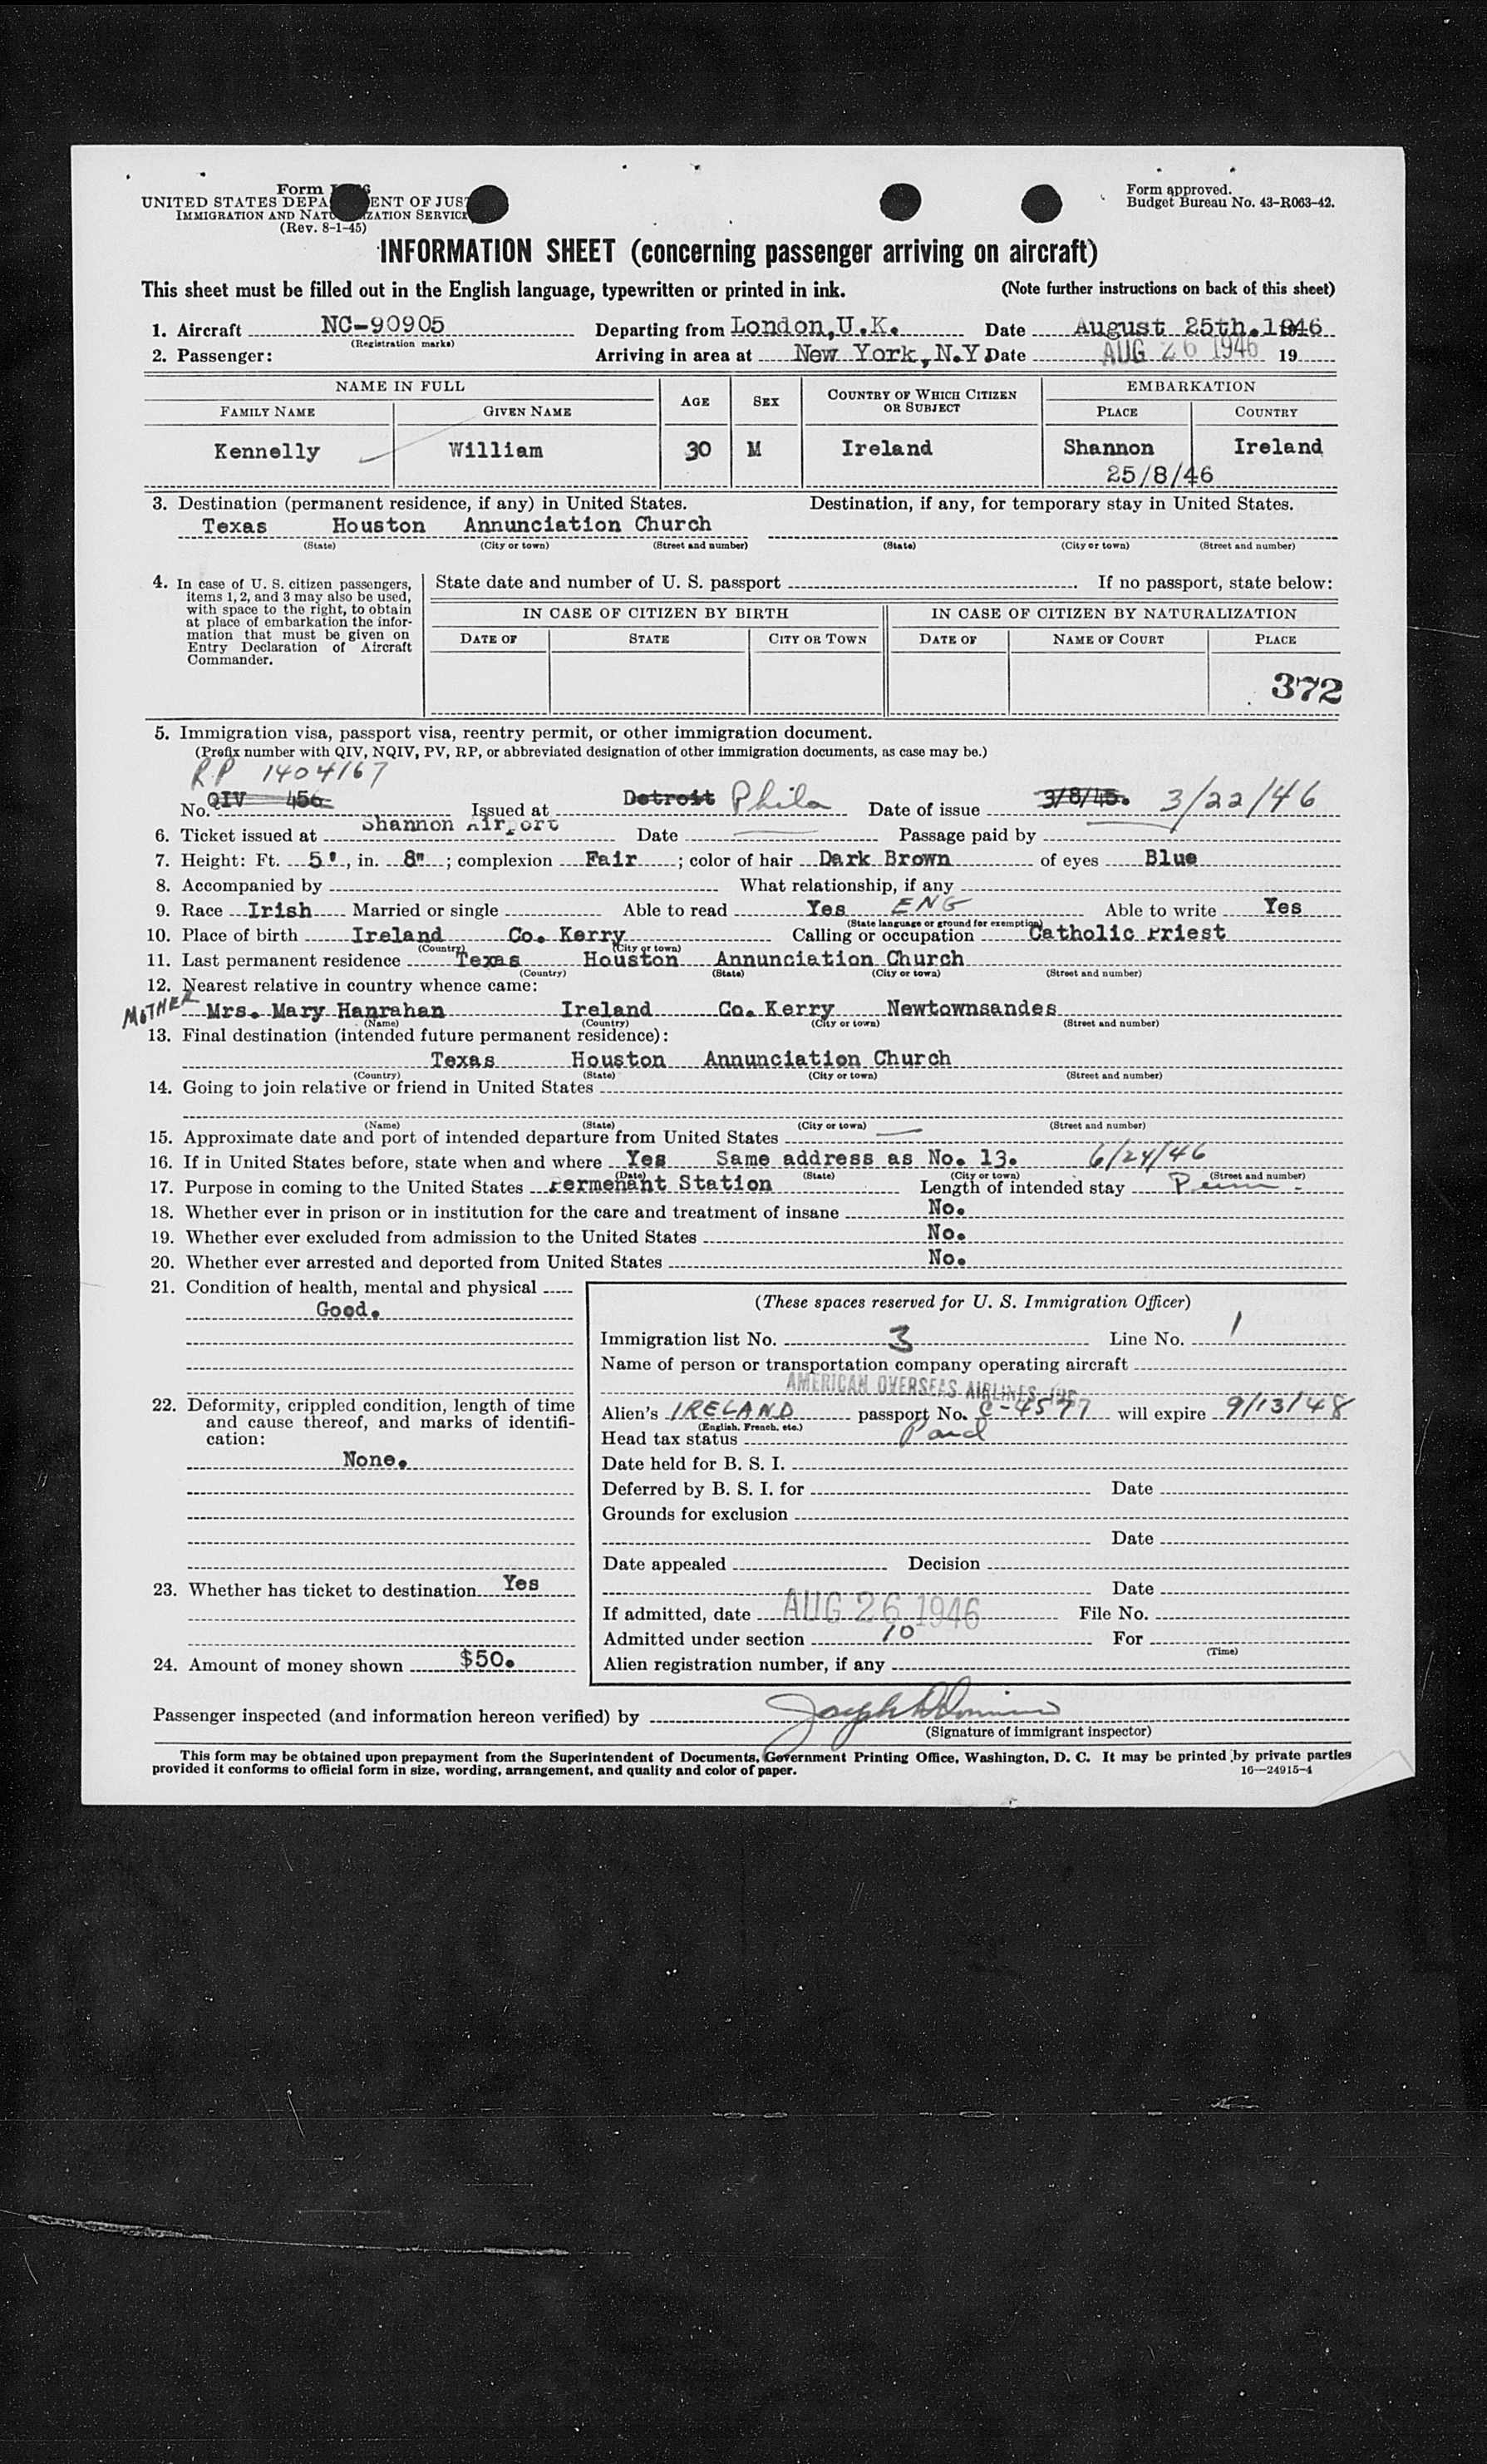 Form I-
UNITED STATES DEPA ENT OF JUS
IMMIGRATION AND NATU IZATION SERVICE
(Rev. 8-1-45)
Form approved.
Budget Bureau No. 43-R063-42.
INFORMATION SHEET (concerning passenger arriving on aircraft)
This sheet must be filled out in the English language, typewritten or printed in ink. (Note further instructions on back of this sheet)
1. Aircraft NC-90905 Departing from London, U.K. Date August 25th. 1946
(Registration marks)
2. Passenger: Arriving in area at New York, N.Y. Date AUG 26 1946 19
NAME IN FULL AGE SEX COUNTRY OF WHICH CITIZEN OR SUBJECT EMBARKATION
FAMILY NAME GIVEN NAME PLACE COUNTRY
Kennelly William 30 M Ireland Shannon Ireland
25/8/46
3. Destination (permanent residence, if any) in United States. Destination, if any, for temporary stay in United States.
Texas Houston Annunciation Church
(State) (City or town) (Street and number) (State) (City or town) (Street and number)
4. In case of U. S. citizen passengers,
items 1, 2, and 3 may also be used,
with space to the right, to obtain
at place of embarkation the infor-
mation that must be given on
Entry Declaration of Aircraft
Commander.
State date and number of U. S. passport If no passport, state below:
IN CASE OF CITIZEN BY BIRTH IN CASE OF CITIZEN BY NATURALIZATION
DATE OF STATE CITY OR TOWN DATE OF NAME OF COURT PLACE
372
5. Immigration visa, passport visa, reentry permit, or other immigration document.
(Prefix number with QIV, NQIV, PV, RP, or abbreviated designation of other immigration documents, as case may be.)
R.P 1404167
No. QIV 456 Issued at Detroit Phila Date of issue 3/8/45. 3/22/46
6. Ticket issued at Shannon Airport Date Passage paid by
7. Height: Ft. 5', in. 8"; complexion Fair; color of hair Dark Brown of eyes Blue
8. Accompanied by What relationship, if any
9. Race Irish Married or single Able to read Yes ENG Able to write Yes
(State language or ground for exemption)
10. Place of birth Ireland Co. Kerry Calling or occupation Catholic Priest
(Country) (City or town)
11. Last permanent residence Texas Houston Annunciation Church
(Country) (State) (City or town) (Street and number)
12. Nearest relative in country whence came:
MOTHER Mrs. Mary Hanrahan Ireland Co. Kerry Newtownsandes
(Name) (Country) (City or town) (Street and number)
13. Final destination (intended future permanent residence):
Texas Houston Annunciation Church
(Country) (State) (City or town) (Street and number)
14. Going to join relative or friend in United States
(Name) (State) (City or town) (Street and number)
15. Approximate date and port of intended departure from United States
16. If in United States before, state when and where Yes Same address as No. 13. 6/24/46
(Date) (State) (City or town) (Street and number)
17. Purpose in coming to the United States Permenant Station Length of intended stay Perm -
18. Whether ever in prison or in institution for the care and treatment of insane No.
19. Whether ever excluded from admission to the United States No.
20. Whether ever arrested and deported from United States No.
21. Condition of health, mental and physical
Good.
22. Deformity, crippled condition, length of time
and cause thereof, and marks of identifi-
cation:
None.
23. Whether has ticket to destination Yes
24. Amount of money shown $50.
(These spaces reserved for U. S. Immigration Officer)
Immigration list No. 3 Line No. 1
Name of person or transportation company operating aircraft
AMERICAN OVERSEAS AIRLINES INC
Alien's IRELAND passport No. C-4577 will expire 9/13/48
(English, French, etc.)
Head tax status Paid
Date held for B. S. I.
Deferred by B. S. I. for Date
Grounds for exclusion
Date
Date appealed Decision
Date
If admitted, date AUG 26 1946 File No.
Admitted under section 10 For
(Time)
Alien registration number, if any
Passenger inspected (and information hereon verified) by Joseph
(Signature of immigrant inspector)
This form may be obtained upon prepayment from the Superintendent of Documents, Government Printing Office, Washington, D. C. It may be printed by private parties
provided it conforms to official form in size, wording, arrangement, and quality and color of paper. 16—24915-4